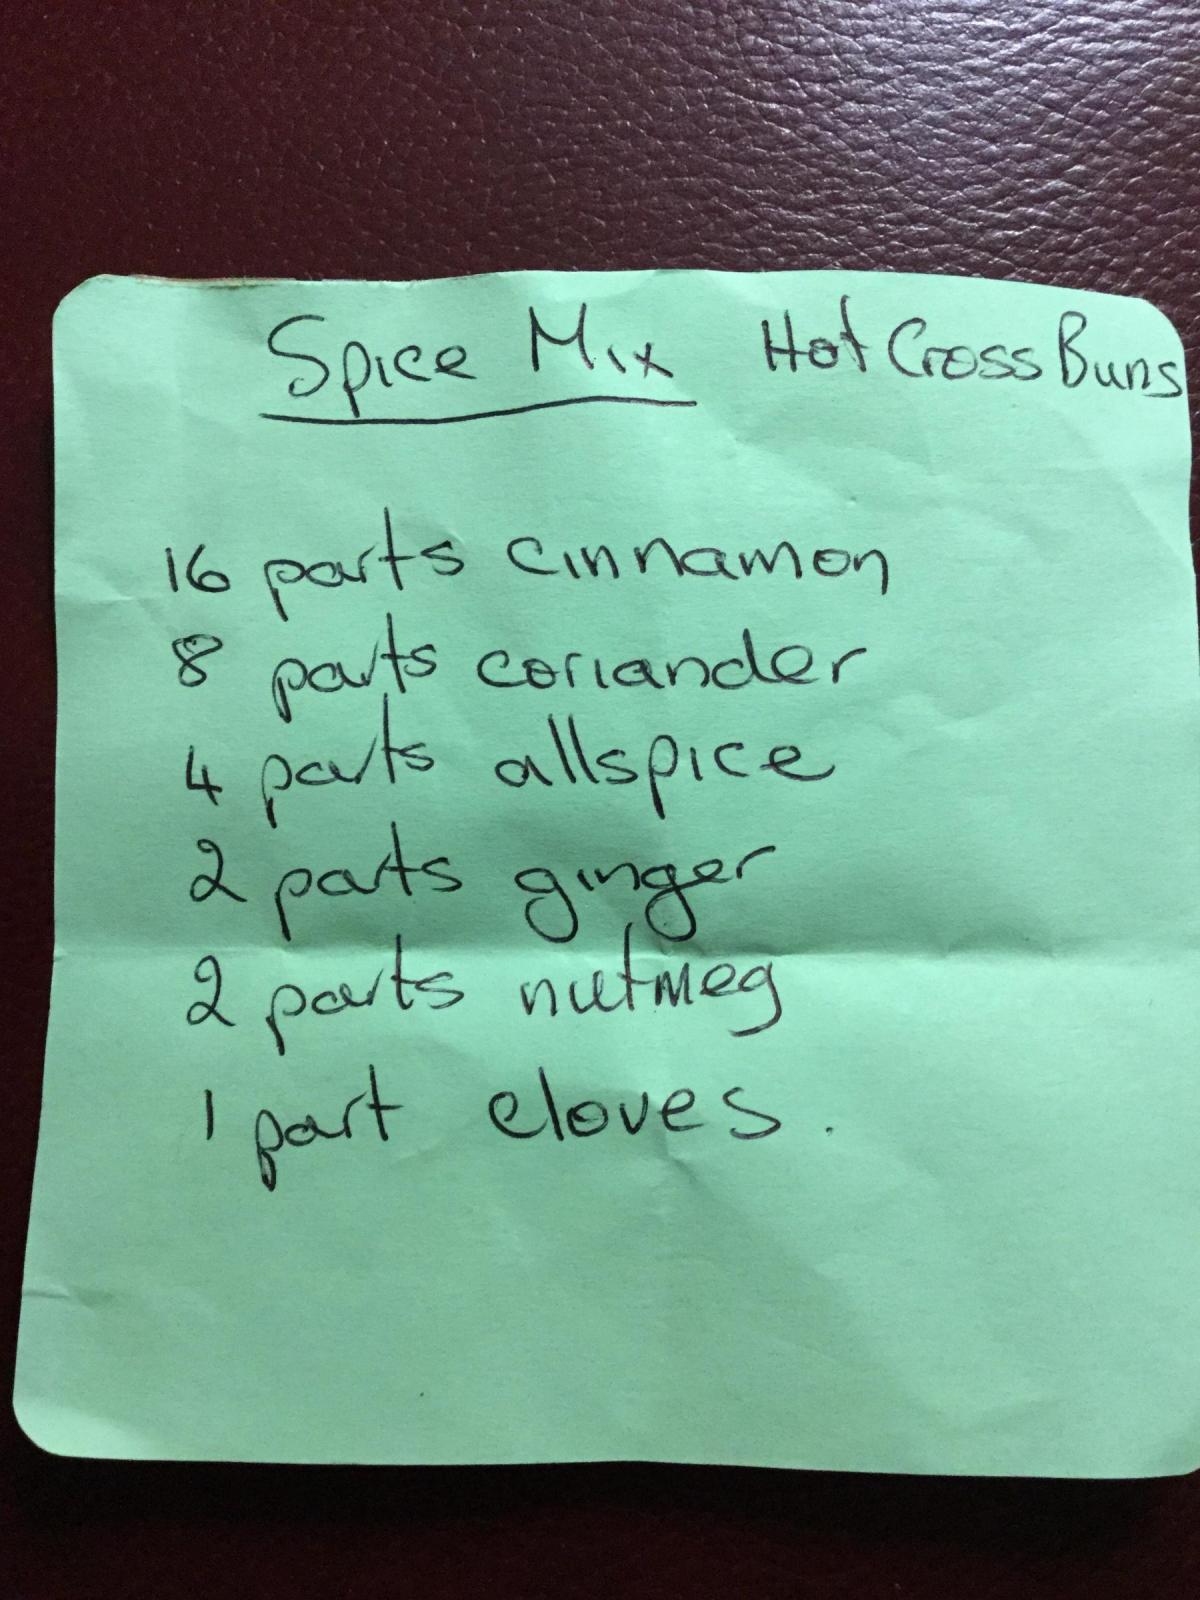 Spice Mix Hot Cross Buns
16 parts cinnamon
8 parts coriander
4 parts allspice
2 parts ginger
2 parts nutmeg
1 part cloves.